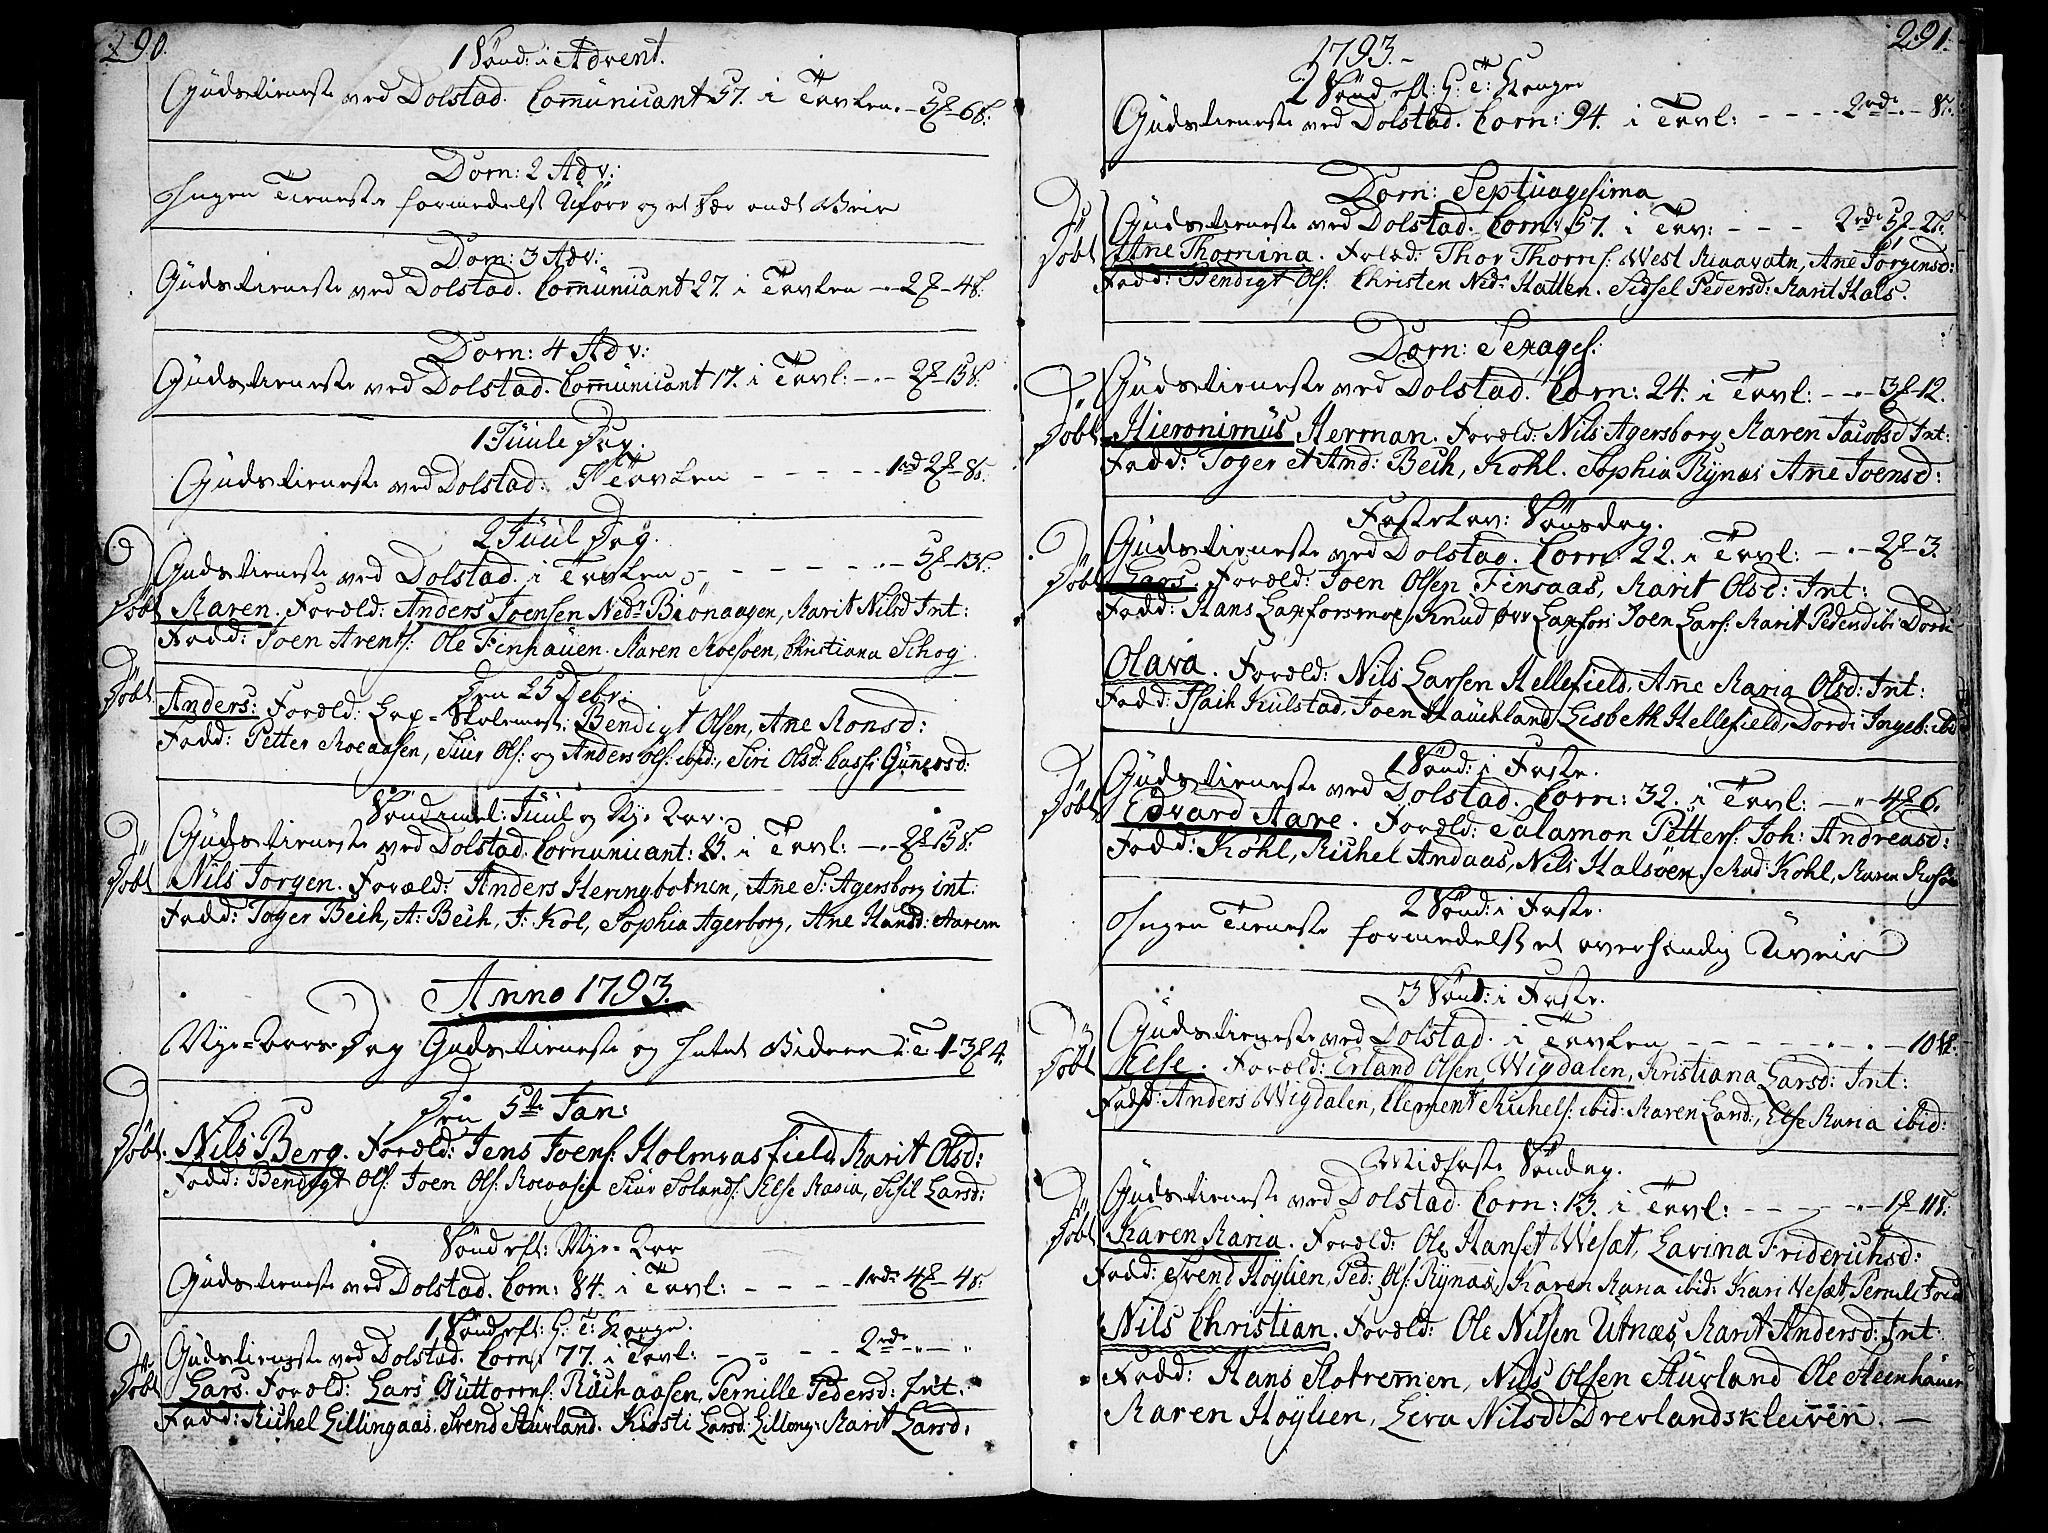 290.
1 Sönd: i Advent.
Gudstieneste ved Dolstad. Com̄unicant 57. i Tavlen. - 5 - 6 s:
Dom̄: 2 Adv:
Ingen Tieneste formedelst Uföre og et Veir
Dom̄: 3 Adv:
Gudstieneste ved Dolstad. Com̄unicant 27. i Tavlen - 2 - 4 s.
Dom̄: 4 Adv:
Gudstieneste ved Dolstad. Com̄unicant 17. i Tavl: - 2 - 15 s.
1 Juule Dag.
Gudstieneste ved Dolstad. I Tavlen - - - - 1 rd 2 - 8 s.
2 Juul Dag.
Gudstieneste ved Dolstad. i Tavlen - - - - - 5 - 13 s.
Döbt Karen. Foræld: Anders Joensen Nedr Biönaagen, Marit Nilsd Int:
Fadd: Joen Arents: Ole Finhauen. Karen Moesöen, Christiana Schog
Den 25 Debr:
Döbt Anders: Foræld: Lap= Skolemest: Bendigt Olsen, Ane Monsd:
Fadd: Petter Roeaasen, Siur Ols: og Anders Ols: ibid:, Siri Olsd: Cassi Gunersd:
Sönd: mel: Juul og Nye Aar.
Gudstieneste ved Dolstad. Com̄unicant: i Tavl: - 2 - 15 s:
Döbt Nils Jorgen. Foræld: Anders Heringbotnen, Ane S: Agersborg int:
Fadd: Toger Bech, A: Bech, J: Kol, Sophia Agerborg, Ane Hansd: Aarem
Anno 1793.
Nye-Aars Dag Gudstieneste og Intet Videre i T 1 - 3 4.
Den 5te Jan:
Döbt. Nils Berg. Foræld: Jens Joens: Holmvasfield Marit Olsd:
Fadd: Bendigt Ols: Joen Ols: Roeaasen Siur Solands: Else Maria, Sisil Larsd:
Sönd eft: Nye-Aar
Gudstieneste ved Dolstad. Com: 84. i Tavl: - - - 1 rd: 4 - 4 s.
1 Sönd eft: H: T: Konger.
Gudstieneste ved Dolstad. Com: 77. i Tavl: - - - - 2 rd
Döbt Lars. Foræld: Lars Guttorms: Ruchaasen, Pernille Pedersd: Int:
Fadd: Michel Lillingaas, Svend Sturland. Kirsti Larsd: Marit Larsd:
291.
1793.
2 Sönd eft: H: T: Konger
Gudstieneste ved Dolstad. Com̄: 94. i Tavl: - - - - 2 rd - 8 s.
Dom̄: Septuagesima
Gudstieneste ved Dolstad. Com: 57. i Tav: - - - 2 rd 5 - 2 s.
Döbt Ane Thomina. Foræld: Thor Thoms: West Rinavatn, Ane Jörgensd:
Fadd: Bendigt Ols: Christen Nedr Hatten. Sidsel Pedersd: Marit Hals.
Dom̄: Sexages:
Gudstieneste ved Dolstad. Com̄: 24. i Tavl: - 3 - 12.
Döbt Hieronimus Herman. Foræld: Nils Agersborg Maren Jacobsd Int:
Fadd: Toger et And: Bech, Kohl. Sophia Rynæs Ane Joensd:
Fastelav: Sönsdag.
Gudstieneste ved Dolstad. Com: 22. i Tavl: - 2 - 3.
Döbt Lars. Foræld: Joen Olsen Finsaas, Marit Olsd: Int:
Fadd: Hans Laxforsmoe, Knud Övr Laxfors Joen Lars: Marit Pedersd ibi Dordi
Olava. Foræld: Nils Larsen Hellefield, Ane Maria Olsd: Int:
Fadd: Isaih Kulstad, Joen Hauchland, Lisbeth Hellefield, Dordi Ingeb: ibid
1 Sönd: i Faste.
Gudstieneste ved Dolstad. Com: 32. i Tavl: - 4 6.
Döbt Edvard Aare. Foræld: Salamon Petters: Joh: Andreasd:
Fadd: Kohl, Michel Andaas, Nils Halsöen, Mad Kohl, Maren
2 Sönd: i Faste.
Ingen Tieneste formedelst et overhændig Uveir
3 Sönd: i Faste.
Gudstieneste ved Dolstad. i Tavlen - - - - - - 10 s.
Döbt Else. Foræld: Erland Olsen Wigdalen, Kristiana Larsd: Int:
Fadd: Anders Wigdalen, Clement Michels: ibid: Maren Larsd:, Else Maria ibid:
Midfaste Söndag.
Gudstieneste ved Dolstad. Com: 13. i Tavl: - - - - 1 - 11 s.
Döbt Karen Maria. Foræld: Ole Hanset Wesæt, Lavina Friderichsd:
Fadd: Svend Höylien, Ped: Ols: Rynæs, Karen Maria ibid: Kari Vesæt, Pernile
Nils Christian. Foræld: Ole Nilsen Utnæs, Marit Andersd: Int:
Fadd: Hans Slotremen, Nils Olsen Sturland Ole Steenhauen
Karen Höylien, Lera Nilsd: Drevlandskleiven. -